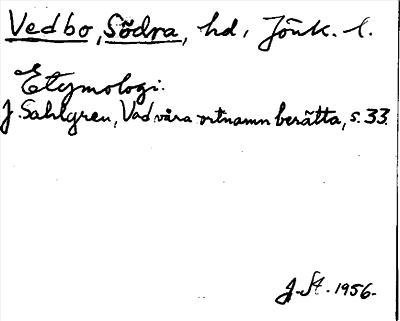 Vedbo, Södra, hd, Jönk. l.
Etymologi.
J. Sahlgren, Vad våra ortnamn berätta, s. 33.
J. St. 1956.